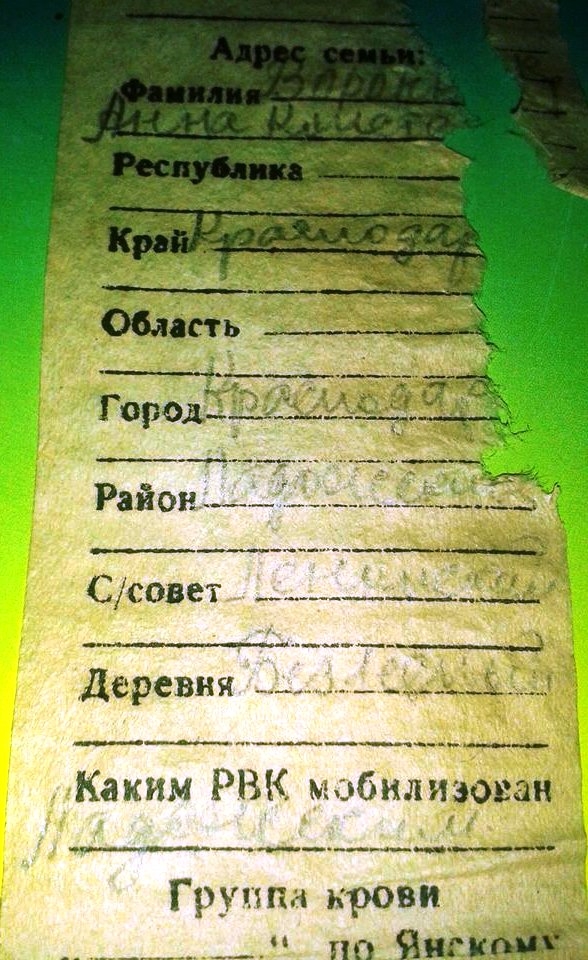 Адрес семьи:
Фамилия
Анна
Республика
Край Краснодар
Область
Город Краснодар
Район
С/совет Ленинский
Деревня
Каким РВК мобилизован
Ладожским
Группа крови
" по Янскому